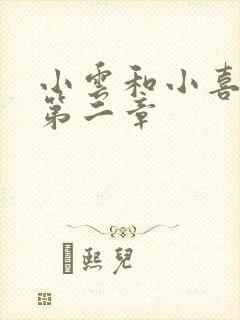 小雲和小喜
第二章
熙兒